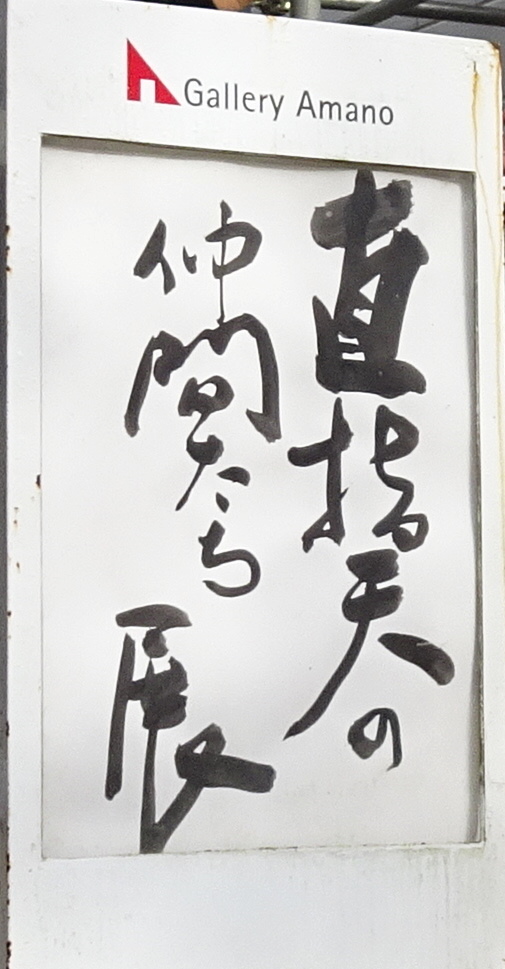 Gallery Amano
直指天の
仲間たち
展